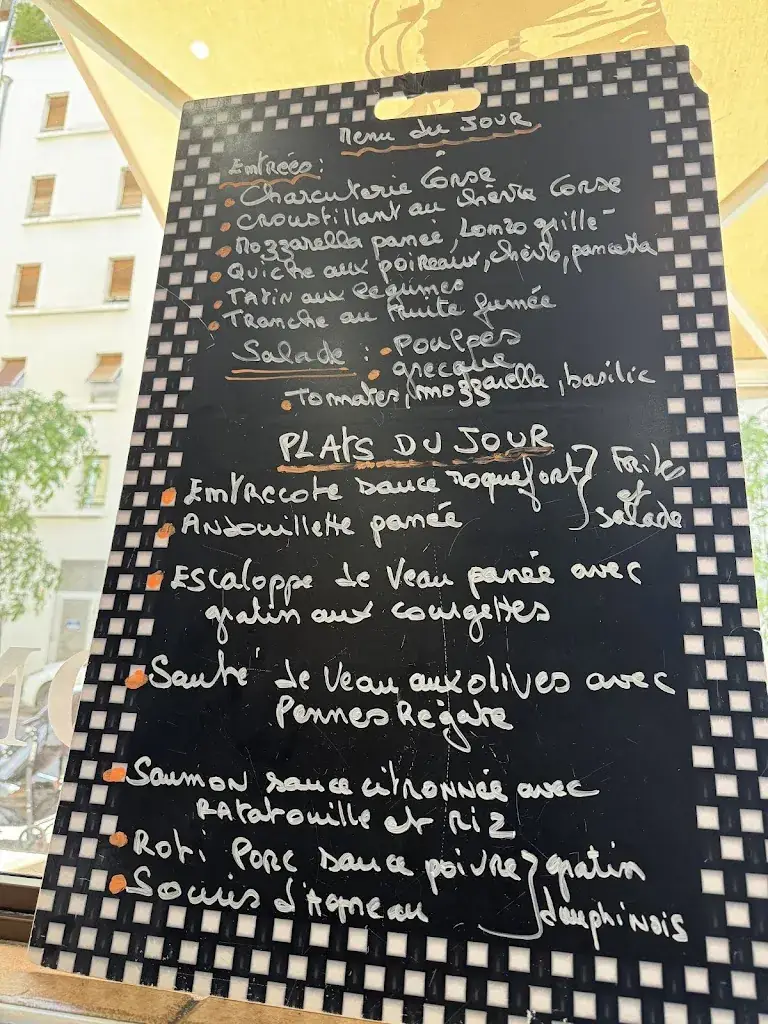 Menu du JOUR
Entrées :
Charcuterie Corse
Croustillant au chèvre Corse
Mozzarella panée, Lomzo grillé
Quiche aux poireaux, chèvre, pancetta
Tatin aux légumes
Tranche au truite fumée
Salade : Poulpes
grecque
Tomates, mozzarella, basilic
PLATS DU JOUR
Entrecote sauce roquefort } Frites
et
Andouillette panée salade
Escaloppe de Veau panée avec
gratin aux courgettes
Sauté de Veau aux olives avec
Pennes Régate
Saumon sauce citronnée avec
Ratatouille et riz
Roti Porc sauce poivre } gratin
Souris d'Agneau dauphinois